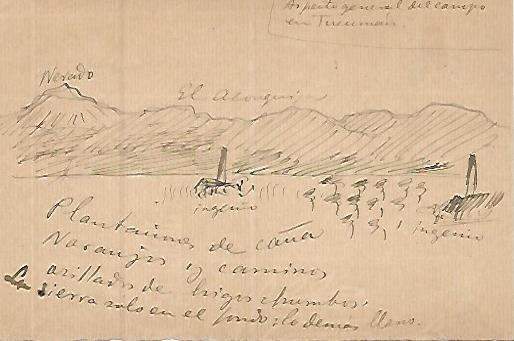 Aspecto general del campo
en Tucumán.
Nevado
El Aconquija
ingenio
ingenio
Plantaciones de caña
Naranjos y caminos
orillados de higos chumbos,
La sierra solo en el fondo; lo demás llano.